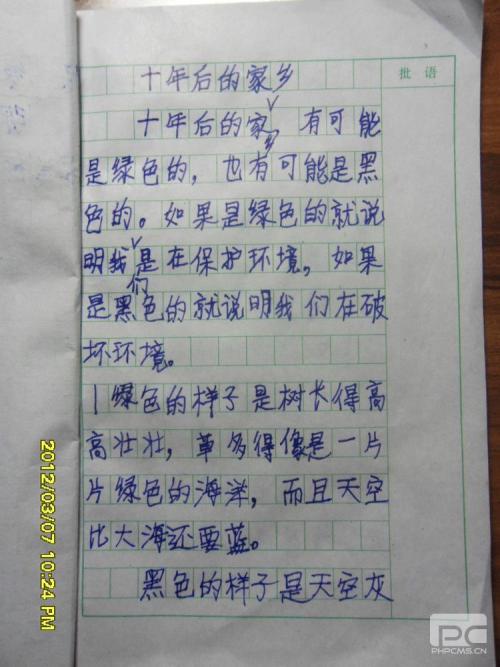 十年后的家乡
批语
十年后的家乡，有可能
是绿色的，也有可能是黑
色的。如果是绿色的就说
明我们是在保护环境，如果
是黑色的就说明我们在破
坏环境。
绿色的样子是树长得高
高壮壮，草多得像是一片
片绿色的海洋，而且天空
比大海还要蓝。
黑色的样子是天空灰
2012/03/07 10:24 PM
PC
PHPCMS.CN